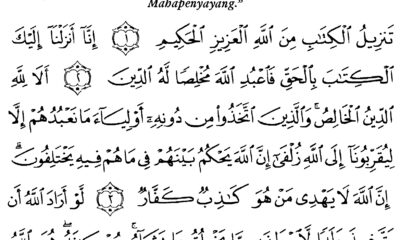 Mahapenyayang."
تَنزِيلُ الْكِتَابِ مِنَ اللَّهِ الْعَزِيزِ الْحَكِيمِ ﴿١﴾ إِنَّا أَنزَلْنَا إِلَيْكَ
الْكِتَابَ بِالْحَقِّ فَاعْبُدِ اللَّهَ مُخْلِصًا لَهُ الدِّينَ ﴿٢﴾ أَلَا لِلَّهِ
الدِّينُ الْخَالِصُ ۚ وَالَّذِينَ اتَّخَذُوا مِن دُونِهِ أَوْلِيَاءَ مَا نَعْبُدُهُمْ إِلَّا
لِيُقَرِّبُونَا إِلَى اللَّهِ زُلْفَىٰ إِنَّ اللَّهَ يَحْكُمُ بَيْنَهُمْ فِي مَا هُمْ فِيهِ يَخْتَلِفُونَ ۗ
إِنَّ اللَّهَ لَا يَهْدِي مَنْ هُوَ كَاذِبٌ كَفَّارٌ ﴿٣﴾ لَوْ أَرَادَ اللَّهُ أَن